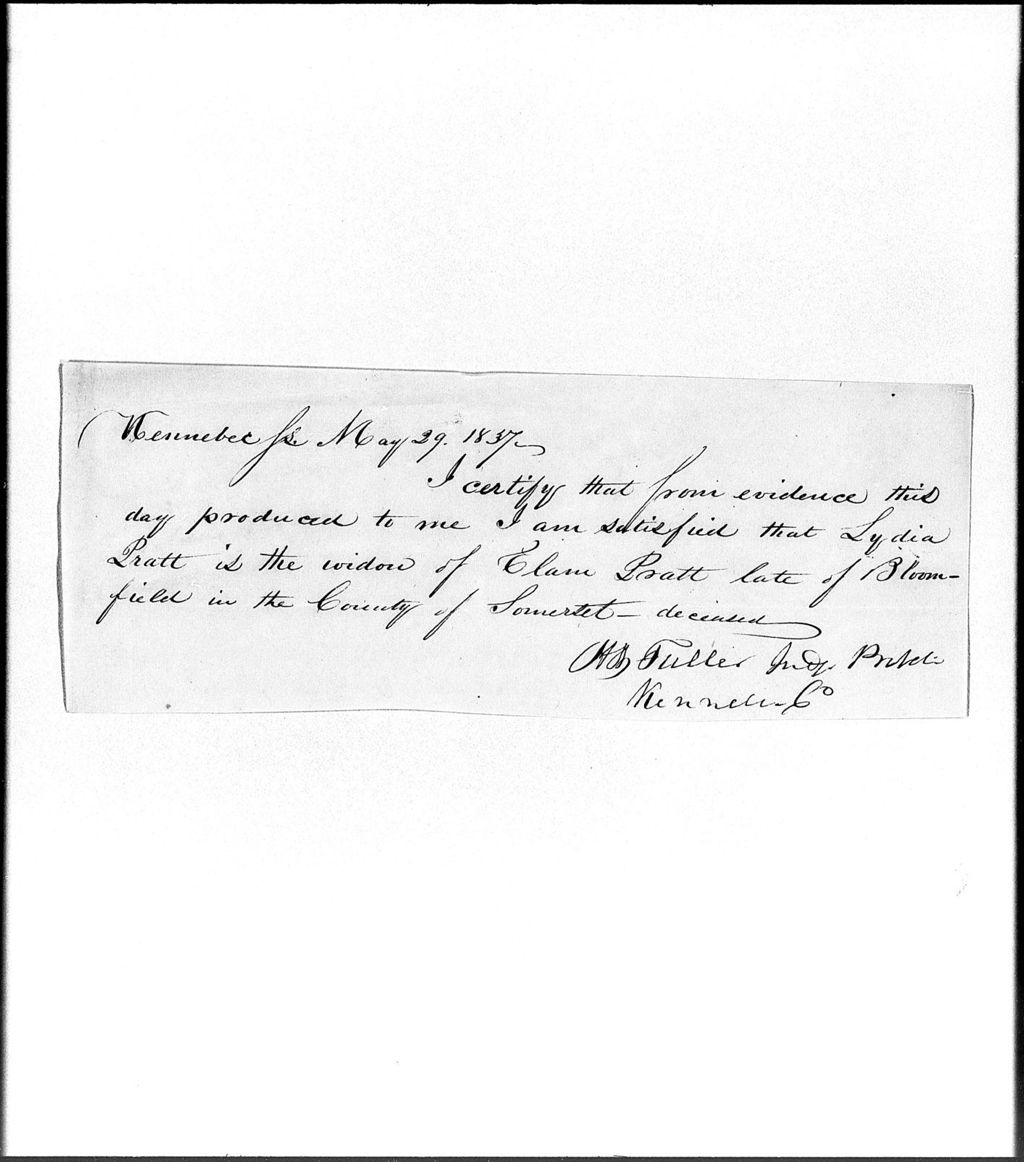 Kennebec ss May 29. 1837
I certify that from evidence this
day produced to me I am satisfied that Lydia
Pratt is the widow of Elam Pratt late of Bloom-
field in the County of Somerset - deceased
Fuller Judge Probate
Kenneb. Co